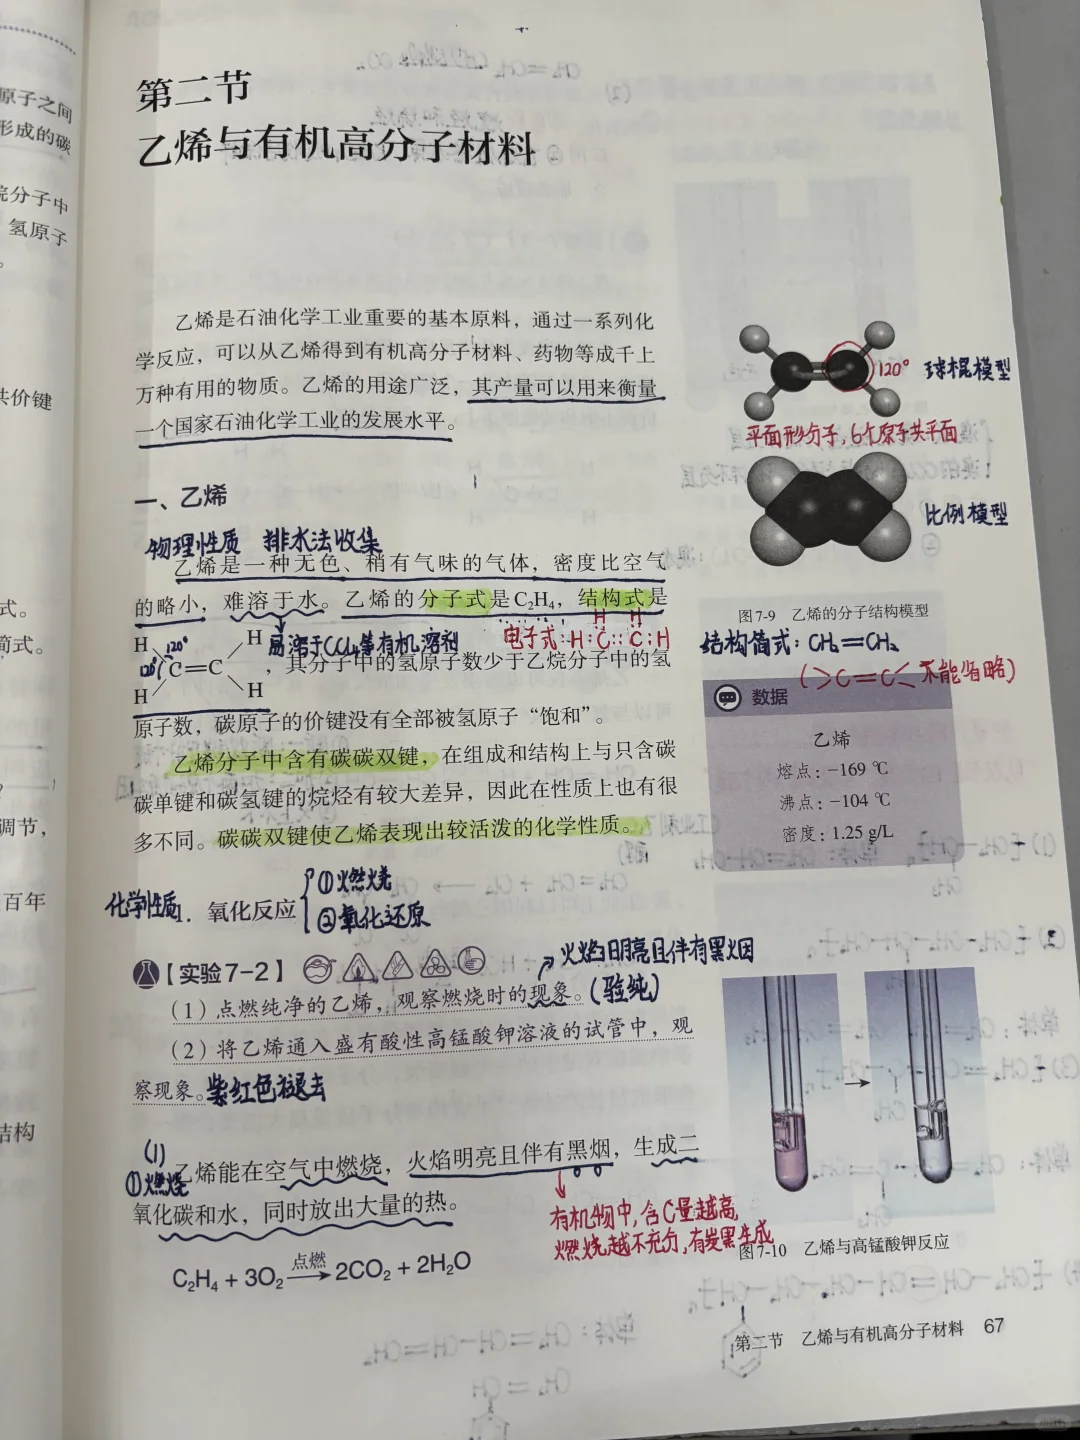 原子之间
形成的碳
烷分子中
氢原子
。
共价键
式。
简式。
调节，
百年
结构
第二节
乙烯与有机高分子材料
乙烯是石油化学工业重要的基本原料，通过一系列化
学反应，可以从乙烯得到有机高分子材料、药物等成千上
万种有用的物质。乙烯的用途广泛，其产量可以用来衡量
一个国家石油化学工业的发展水平。
120° 球棍模型
平面形分子，6个原子共平面
比例模型
图7-9 乙烯的分子结构模型
结构简式：CH₂=CH₂
(>C=C< 不能省略)
一、乙烯
物理性质 排水法收集
乙烯是一种无色、稍有气味的气体，密度比空气
的略小，难溶于水。乙烯的分子式是C₂H₄，结构式是
易溶于CCl₄等有机溶剂
H H
电子式 H:C::C:H
H 120° H
120° C=C ，其分子中的氢原子数少于乙烷分子中的氢
H H
原子数，碳原子的价键没有全部被氢原子“饱和”。
乙烯分子中含有碳碳双键，在组成和结构上与只含碳
碳单键和碳氢键的烷烃有较大差异，因此在性质上也有很
多不同。碳碳双键使乙烯表现出较活泼的化学性质。
数据
乙烯
熔点：-169 ℃
沸点：-104 ℃
密度：1.25 g/L
化学性质
1. 氧化反应
①燃烧
②氧化还原
【实验7-2】
火焰明亮且伴有黑烟
（1）点燃纯净的乙烯，观察燃烧时的现象。(验纯)
（2）将乙烯通入盛有酸性高锰酸钾溶液的试管中，观
察现象。紫红色褪去
(1)
①燃烧
乙烯能在空气中燃烧，火焰明亮且伴有黑烟，生成二
氧化碳和水，同时放出大量的热。
有机物中，含C量越高
燃烧越不充分，有炭黑生成
C₂H₄ + 3O₂ 点燃→ 2CO₂ + 2H₂O
图7-10 乙烯与高锰酸钾反应
第二节 乙烯与有机高分子材料 67